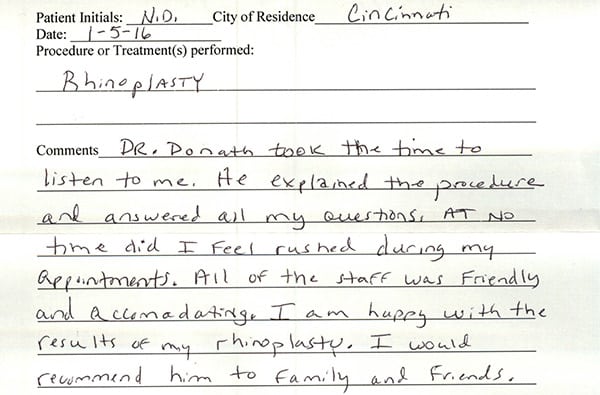 Patient Initials: N.D. City of Residence Cincinnati
Date: 1-5-16
Procedure or Treatment(s) performed:
RhinoplASTY
Comments DR. Donath took the time to
listen to me. He explained the procedure
and answered all my questions. AT NO
time did I feel rushed during my
appointments. All of the staff was Friendly
and accomadating. I am happy with the
results of my rhinoplasty. I would
recommend him to family and friends.